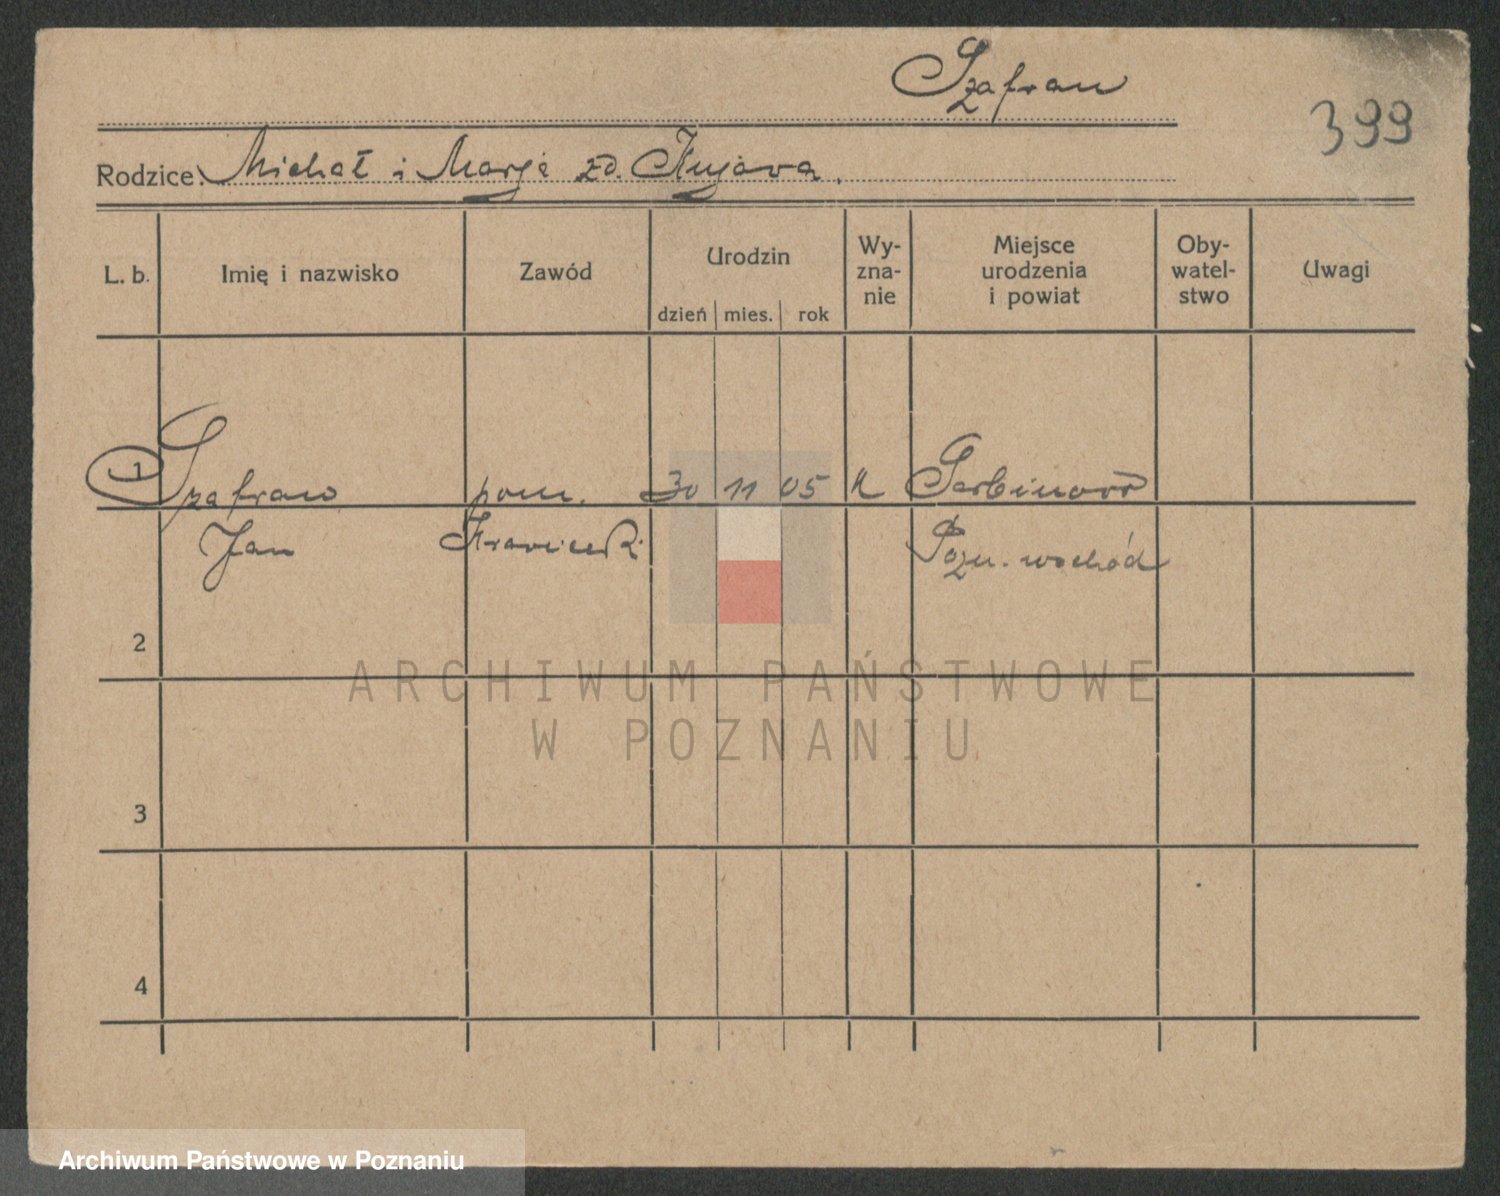 Szafran
399
Rodzice: Michał i Marja zd. Kujawa.
L. b.
Imię i nazwisko
Zawód
Urodzin
dzień mies. rok
Wy-
zna-
nie
Miejsce
urodzenia
i powiat
Oby-
watel-
stwo
Uwagi
1 Szafran pom. 30 11 05 k
Jan
Pozn. wschód
2
3
4
ARCHIWUM PAŃSTWOWE
W POZNANIU
Archiwum Państwowe w Poznaniu